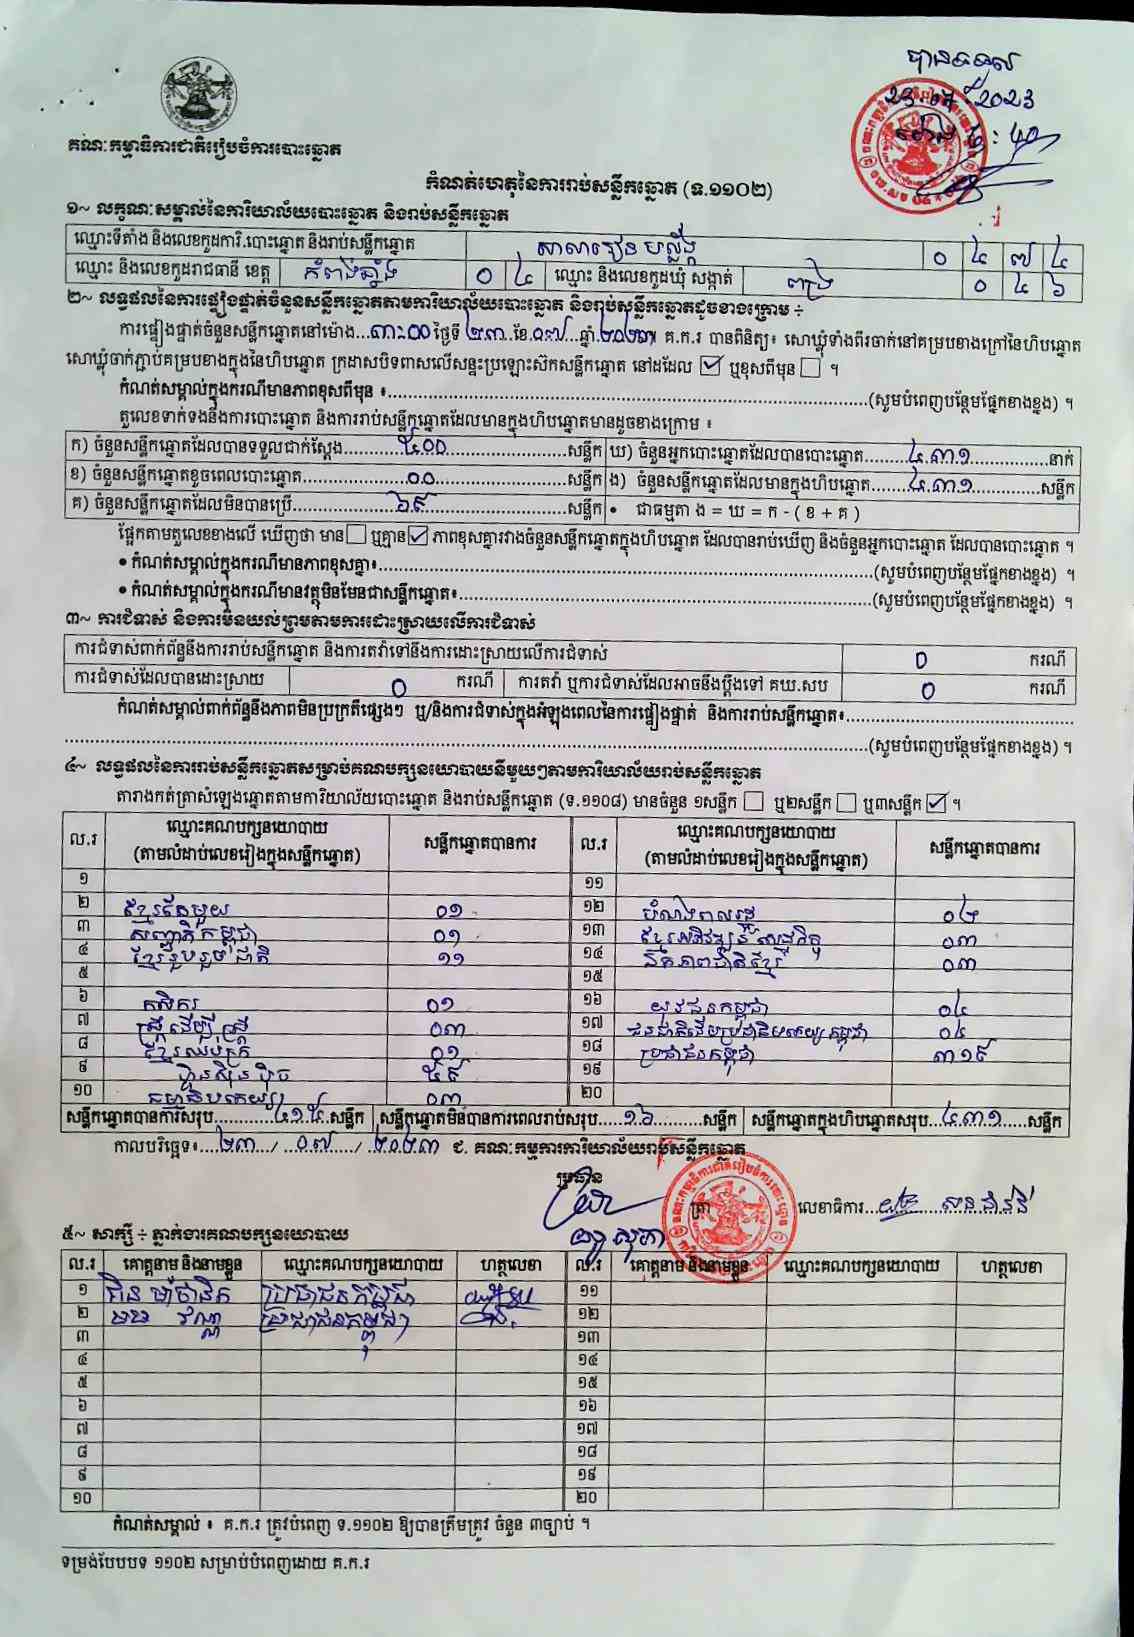 បានទទួល
23 2023
គណៈកម្មាធិការជាតិរៀបចំការបោះឆ្នោត
កំណត់ហេតុនៃការរាប់សន្លឹកឆ្នោត (ទ.១១០២)
១~ លក្ខណៈសម្គាល់នៃការិយាល័យបោះឆ្នោត និងរាប់សន្លឹកឆ្នោត
ឈ្មោះទីតាំង និងលេខកូដការិ.បោះឆ្នោត និងរាប់សន្លឹកឆ្នោត សាលារៀន ០ ៤ ៧ ៤
ឈ្មោះ និងលេខកូដរាជធានី ខេត្ត កំពង់ឆ្នាំង ០ ៤ ឈ្មោះ និងលេខកូដឃុំ សង្កាត់ ០ ៤ ៦
២~ លទ្ធផលនៃការផ្ទៀងផ្ទាត់ចំនួនសន្លឹកឆ្នោតតាមការិយាល័យបោះឆ្នោត និងរាប់សន្លឹកឆ្នោតដូចខាងក្រោម ÷
ការផ្ទៀងផ្ទាត់ចំនួនសន្លឹកឆ្នោតនៅម៉ោង...៣:០០ ថ្ងៃទី ២៣ ខែ ០៧ ឆ្នាំ ២០២៣ គ.ក.រ បានពិនិត្យ៖ សោឃ្លុំទាំងពីរចាក់នៅគម្របខាងក្រៅនៃហិបឆ្នោត
សោឃ្លុំចាក់ភ្ជាប់គម្របខាងក្នុងនៃហិបឆ្នោត ក្រដាសបិទពាសលើសន្ទះប្រឡោះស៊កសន្លឹកឆ្នោត នៅដដែល ☑ ឬខុសពីមុន ☐ ។
កំណត់សម្គាល់ក្នុងករណីមានភាពខុសពីមុន ៖...(សូមបំពេញបន្ថែមផ្នែកខាងខ្នង) ។
តួលេខទាក់ទងនឹងការបោះឆ្នោត និងការរាប់សន្លឹកឆ្នោតដែលមានក្នុងហិបឆ្នោតមានដូចខាងក្រោម ៖
ក) ចំនួនសន្លឹកឆ្នោតដែលបានទទួលជាក់ស្តែង...៥០០...សន្លឹក ឃ) ចំនួនអ្នកបោះឆ្នោតដែលបានបោះឆ្នោត...៤៣១...នាក់
ខ) ចំនួនសន្លឹកឆ្នោតខូចពេលបោះឆ្នោត...០០...សន្លឹក ង) ចំនួនសន្លឹកឆ្នោតដែលមានក្នុងហិបឆ្នោត...៤៣១...សន្លឹក
គ) ចំនួនសន្លឹកឆ្នោតដែលមិនបានប្រើ...៦៩...សន្លឹក • ជាធម្មតា ង = ឃ = ក - ( ខ + គ )
ផ្អែកតាមតួលេខខាងលើ ឃើញថា មាន ☐ ឬគ្មាន ☑ ភាពខុសគ្នារវាងចំនួនសន្លឹកឆ្នោតក្នុងហិបឆ្នោត ដែលបានរាប់ឃើញ និងចំនួនអ្នកបោះឆ្នោត ដែលបានបោះឆ្នោត ។
• កំណត់សម្គាល់ក្នុងករណីមានភាពខុសគ្នា៖...(សូមបំពេញបន្ថែមផ្នែកខាងខ្នង) ។
• កំណត់សម្គាល់ក្នុងករណីមានវត្ថុមិនមែនជាសន្លឹកឆ្នោត៖...(សូមបំពេញបន្ថែមផ្នែកខាងខ្នង) ។
៣~ ការជំទាស់ និងការមិនយល់ព្រមតាមការដោះស្រាយលើការជំទាស់
ការជំទាស់ពាក់ព័ន្ធនឹងការរាប់សន្លឹកឆ្នោត និងការតវ៉ាទៅនឹងការដោះស្រាយលើការជំទាស់ ០ ករណី
ការជំទាស់ដែលបានដោះស្រាយ ០ ករណី ការតវ៉ា ឬការជំទាស់ដែលអាចនឹងប្តឹងទៅ គឃ.សប ០ ករណី
កំណត់សម្គាល់ពាក់ព័ន្ធនឹងភាពមិនប្រក្រតីផ្សេងៗ ឬ/និងការជំទាស់ក្នុងអំឡុងពេលនៃការផ្ទៀងផ្ទាត់ និងការរាប់សន្លឹកឆ្នោត៖...
...(សូមបំពេញបន្ថែមផ្នែកខាងខ្នង) ។
៤~ លទ្ធផលនៃការរាប់សន្លឹកឆ្នោតសម្រាប់គណបក្សនយោបាយនីមួយៗតាមការិយាល័យរាប់សន្លឹកឆ្នោត
តារាងកត់ត្រាសំឡេងឆ្នោតតាមការិយាល័យបោះឆ្នោត និងរាប់សន្លឹកឆ្នោត (ទ.១១០៨) មានចំនួន ១សន្លឹក ☐ ឬ២សន្លឹក ☐ ឬ៣សន្លឹក ☑ ។
ល.រ ឈ្មោះគណបក្សនយោបាយ (តាមលំដាប់លេខរៀងក្នុងសន្លឹកឆ្នោត) សន្លឹកឆ្នោតបានការ ល.រ ឈ្មោះគណបក្សនយោបាយ (តាមលំដាប់លេខរៀងក្នុងសន្លឹកឆ្នោត) សន្លឹកឆ្នោតបានការ
១ ១១
២ ខ្មែរតែមួយ ០១ ១២ បំណងពលរដ្ឋ ០៤
៣ សញ្ជាតិកម្ពុជា ០១ ១៣ ខ្មែរអភិវឌ្ឍន៍សេដ្ឋកិច្ច ០៣
៤ ខ្មែររួបរួមជាតិ ១១ ១៤ ឯកភាពជាតិខ្មែរ ០៣
៥ ១៥
៦ កសិករ ០១ ១៦ យុវជនកម្ពុជា ០៤
៧ ស្ត្រីដើម្បីស្ត្រី ០៣ ១៧ ជនជាតិដើមប្រជាធិបតេយ្យកម្ពុជា ០៤
៨ ខ្មែរឈប់ក្រ ០១ ១៨ ប្រជាជនកម្ពុជា ៣១៩
៩ ហ្វ៊ុនស៊ិនប៉ិច ៥៩ ១៩
១០ ធម្មាធិបតេយ្យ ០៣ ២០
សន្លឹកឆ្នោតបានការសរុប...៤១៥...សន្លឹក សន្លឹកឆ្នោតមិនបានការពេលរាប់សរុប...១៦...សន្លឹក សន្លឹកឆ្នោតក្នុងហិបឆ្នោតសរុប...៤៣១...សន្លឹក
កាលបរិច្ឆេទ៖...២៣.../...០៧.../...២០២៣ ជ. គណៈកម្មការការិយាល័យរាប់សន្លឹកឆ្នោត
ប្រធាន ត្រា លេខាធិការ
៥~ សាក្សី ÷ ភ្នាក់ងារគណបក្សនយោបាយ
ល.រ គោត្តនាម និងនាមខ្លួន ឈ្មោះគណបក្សនយោបាយ ហត្ថលេខា ល.រ គោត្តនាម និងនាមខ្លួន ឈ្មោះគណបក្សនយោបាយ ហត្ថលេខា
១ ប្រជាជនកម្ពុជា ១១
២ ប្រជាជនកម្ពុជា ១២
៣ ១៣
៤ ១៤
៥ ១៥
៦ ១៦
៧ ១៧
៨ ១៨
៩ ១៩
១០ ២០
កំណត់សម្គាល់ ៖ គ.ក.រ ត្រូវបំពេញ ទ.១១០២ ឱ្យបានត្រឹមត្រូវ ចំនួន ៣ច្បាប់ ។
ទម្រង់បែបបទ ១១០២ សម្រាប់បំពេញដោយ គ.ក.រ